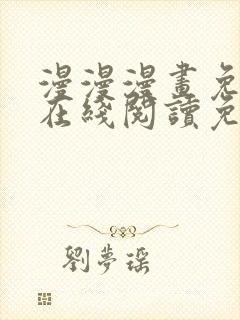 漫漫漫畫免
在綫閱讀免
劉夢瑶